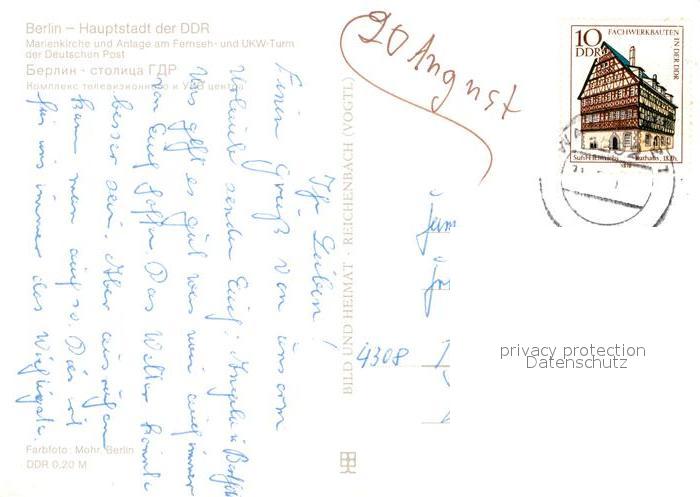 Berlin – Hauptstadt der DDR
Marienkirche und Anlage am Fernseh- und UKW-Turm
der Deutschen Post
Берлин - столица ГДР
Комплекс телевизионного и УКВ центра
20 August
10
DDR
FACHWERKBAUTEN
IN DER DDR
Rathaus,
Ihr Lieben!
Einen Gruß von unserm
Urlaub senden Euch: Angela u.
Uns geht es gut was wir auch immer
von Euch hoffen. Das Wetter könnte
besser sein. Aber
kann man auch so. Das ist
für uns immer das Wichtigste.
BILD UND HEIMAT · REICHENBACH (VOGTL)
4308
privacy protection
Datenschutz
Farbfoto: Mohr, Berlin
DDR 0,20 M